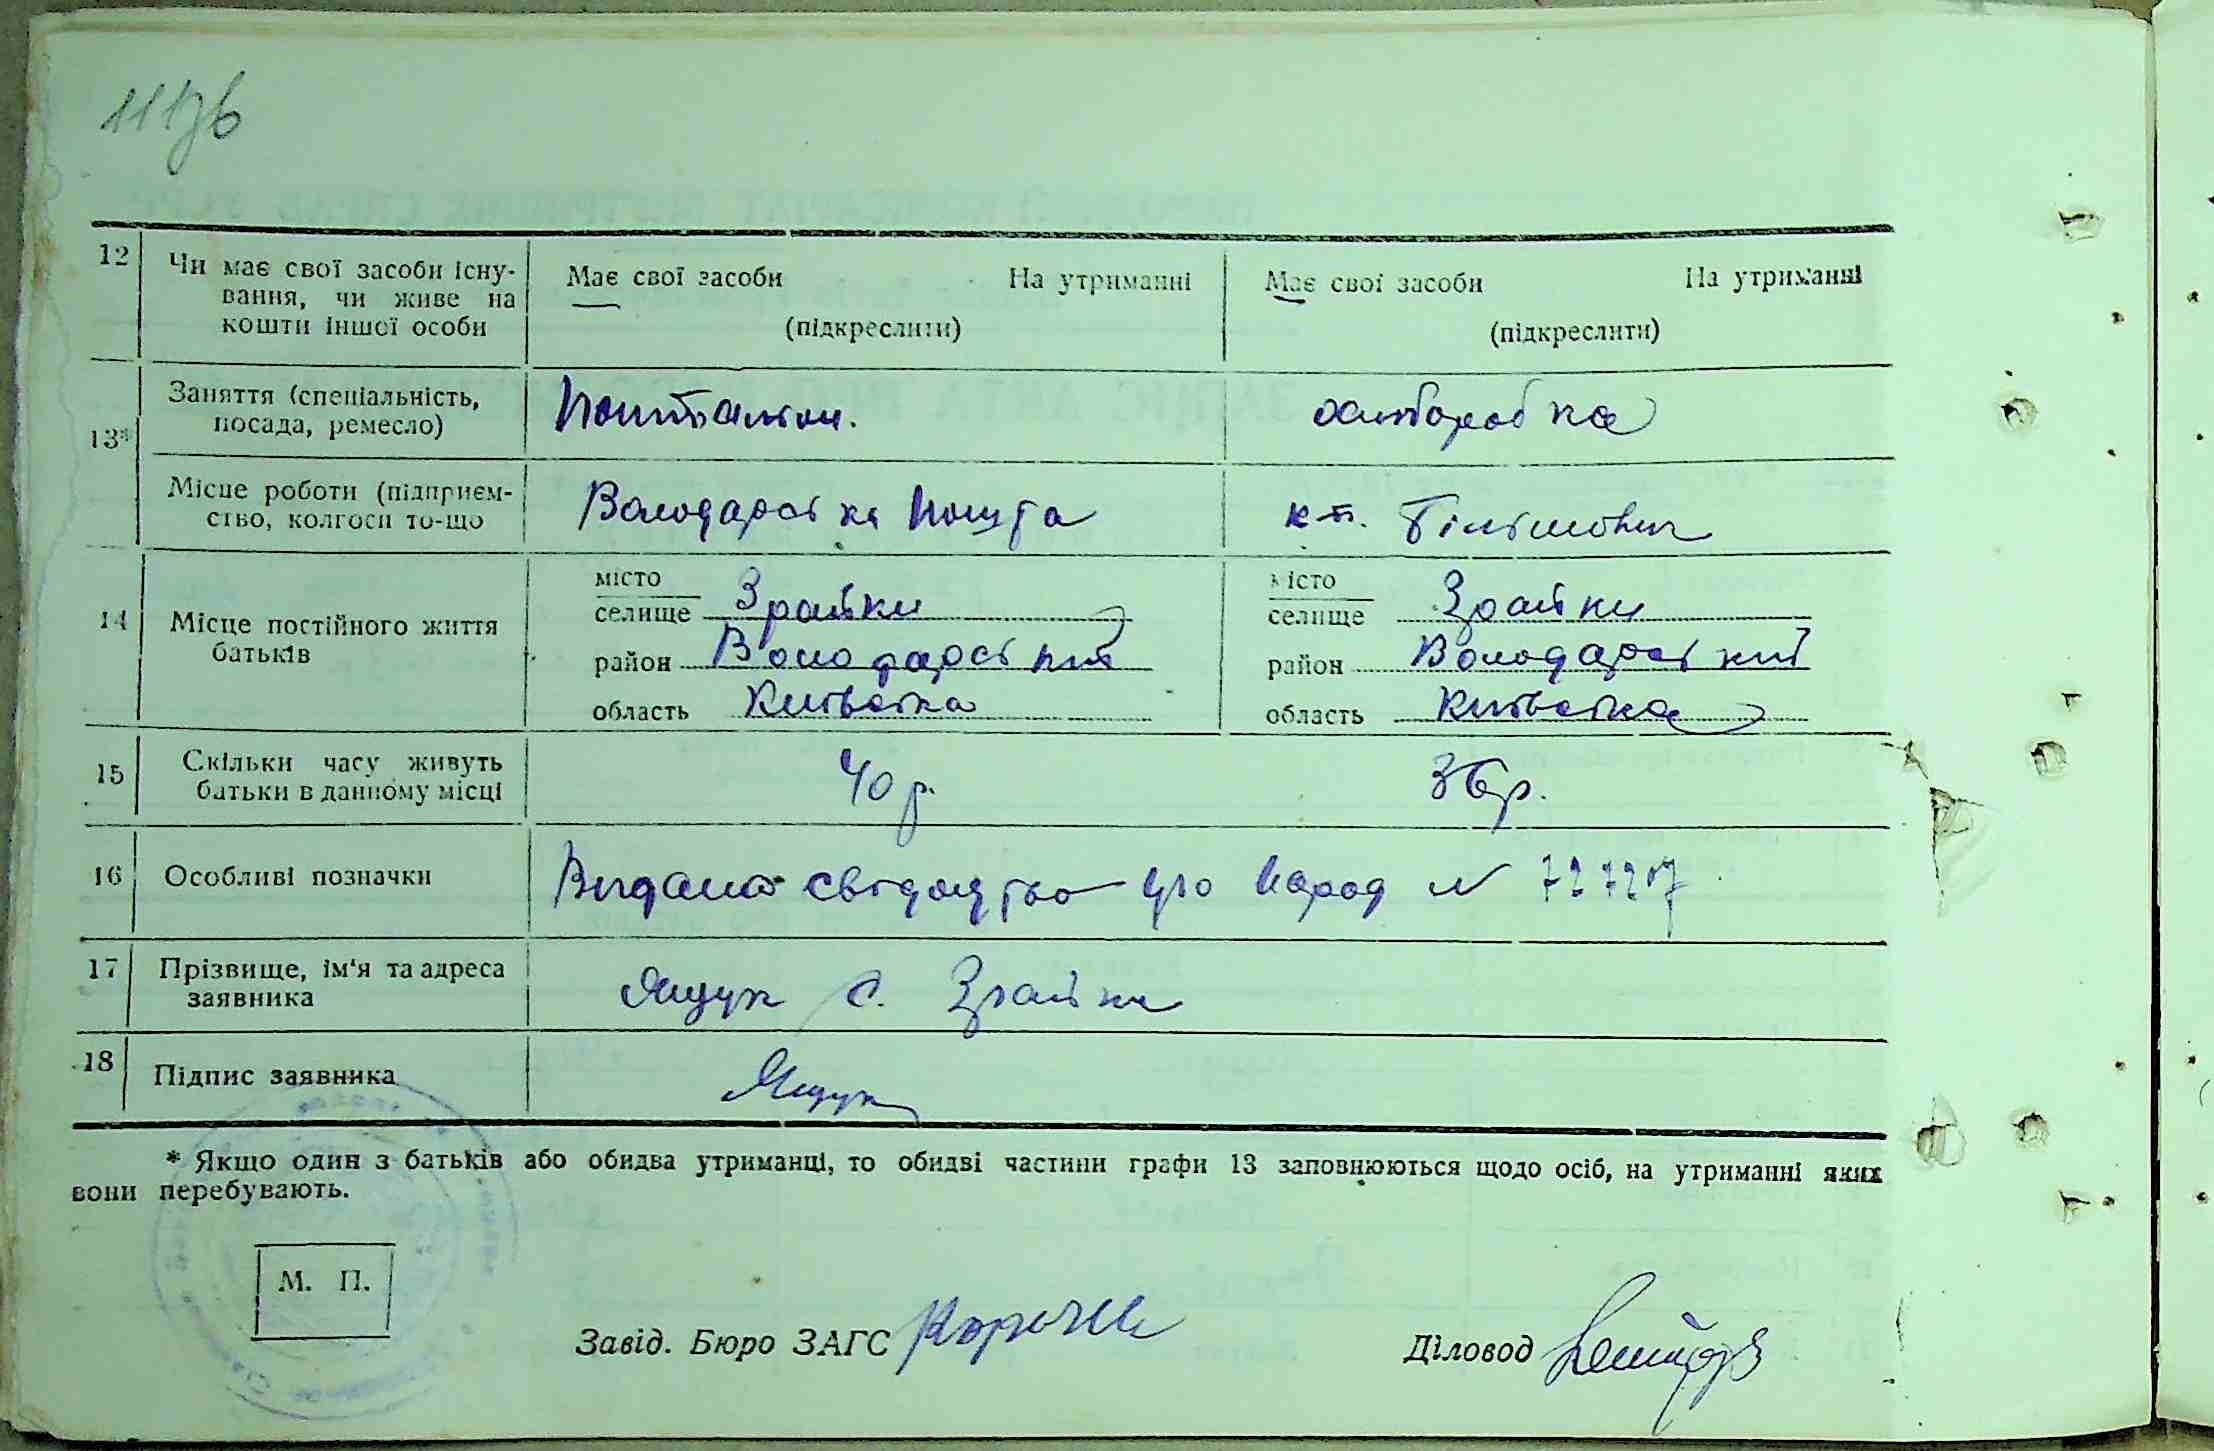 12 Чи має свої засоби існу-
вання, чи живе на
кошти іншої особи
Має свої засоби На утриманні
(підкреслити)
Має свої засоби На утриманні
(підкреслити)
13* Заняття (спеціальність,
посада, ремесло)
Поштальон.
хліборобка
Місце роботи (підприєм-
ство, колгосп то-що
Володарська пошта
к-п. Більшовик
14 Місце постійного життя
батьків
місто
селище Зрайки
район Володарський
область Київська
місто
селище Зрайки
район Володарський
область Київська
15 Скільки часу живуть
батьки в данному місці
40 р.
36 р.
16 Особливі позначки
Видано свідоцтво про народ №
17 Прізвище, ім'я та адреса
заявника
Ящук с. Зрайки
18 Підпис заявника
Ящук
* Якщо один з батьків або обидва утриманці, то обидві частини графи 13 заповнюються щодо осіб, на утриманні яких
вони перебувають.
М. П.
Завід. Бюро ЗАГС
Діловод